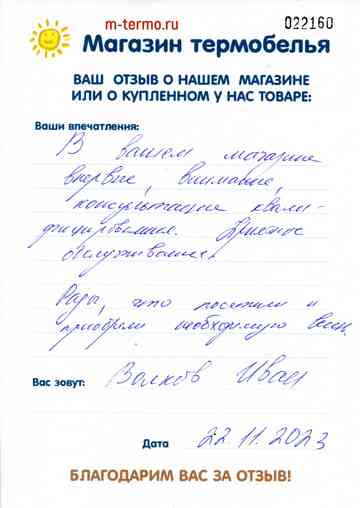 m-termo.ru
022160
Магазин термобелья
ВАШ ОТЗЫВ О НАШЕМ МАГАЗИНЕ
ИЛИ О КУПЛЕННОМ У НАС ТОВАРЕ:
Ваши впечатления:
В вашем магазине
впервые, внимание,
консультации квали-
фицированные.
обслуживание.
Рады, что посетили и
приобрели необходимую вещь.
Вас зовут: Волков Иван
Дата 22.11.2023
БЛАГОДАРИМ ВАС ЗА ОТЗЫВ!